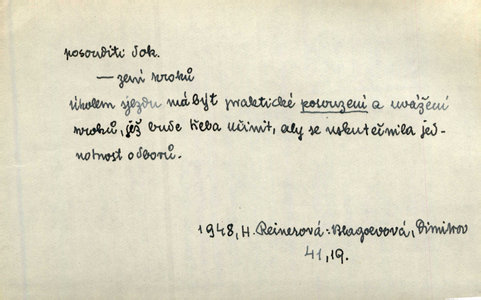 posouditi dok.
— zení kroků
úkolem sjezdu má být praktické posouzení a uvážení
kroků, jež bude třeba učinit, aby se uskutečnila jed-
notnost odborů.
1948, H. Reinerová-Blagoevová, Dimitrov
41, 19.